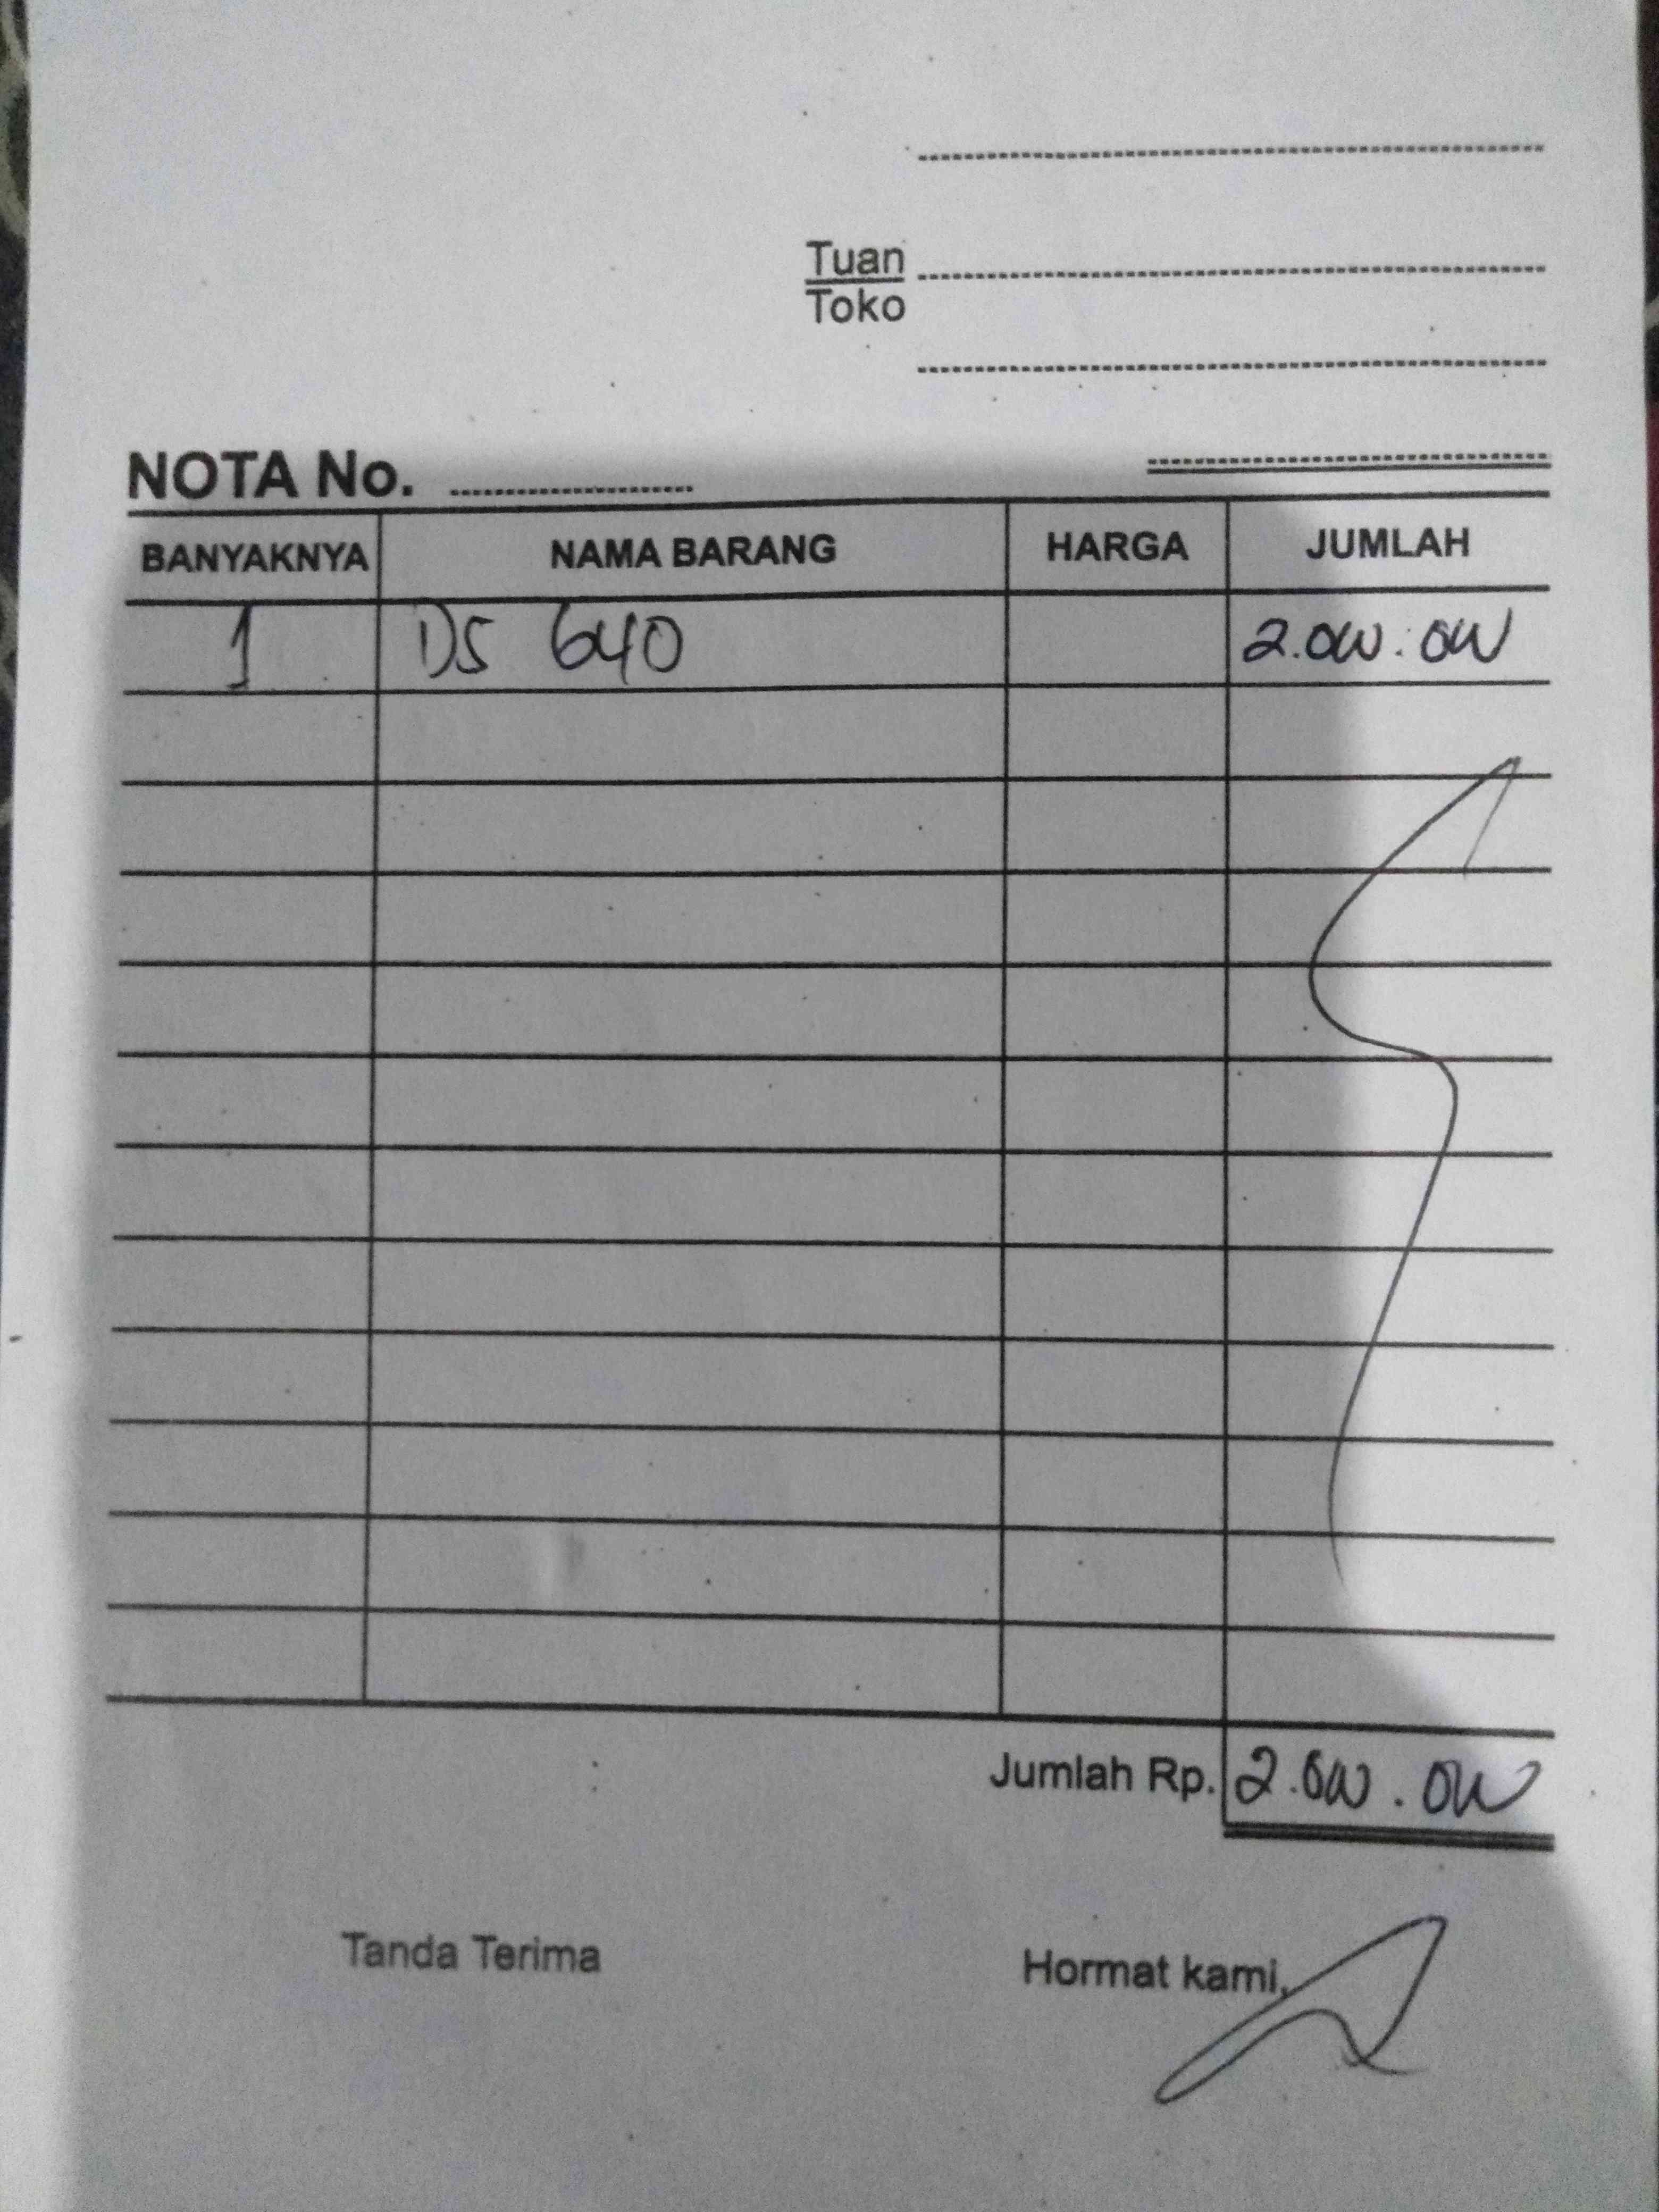 Tuan
Toko
NOTA No.
BANYAKNYA NAMA BARANG HARGA JUMLAH
1 DS 640 2.000.000
Jumlah Rp. 2.000.000
Tanda Terima Hormat kami,